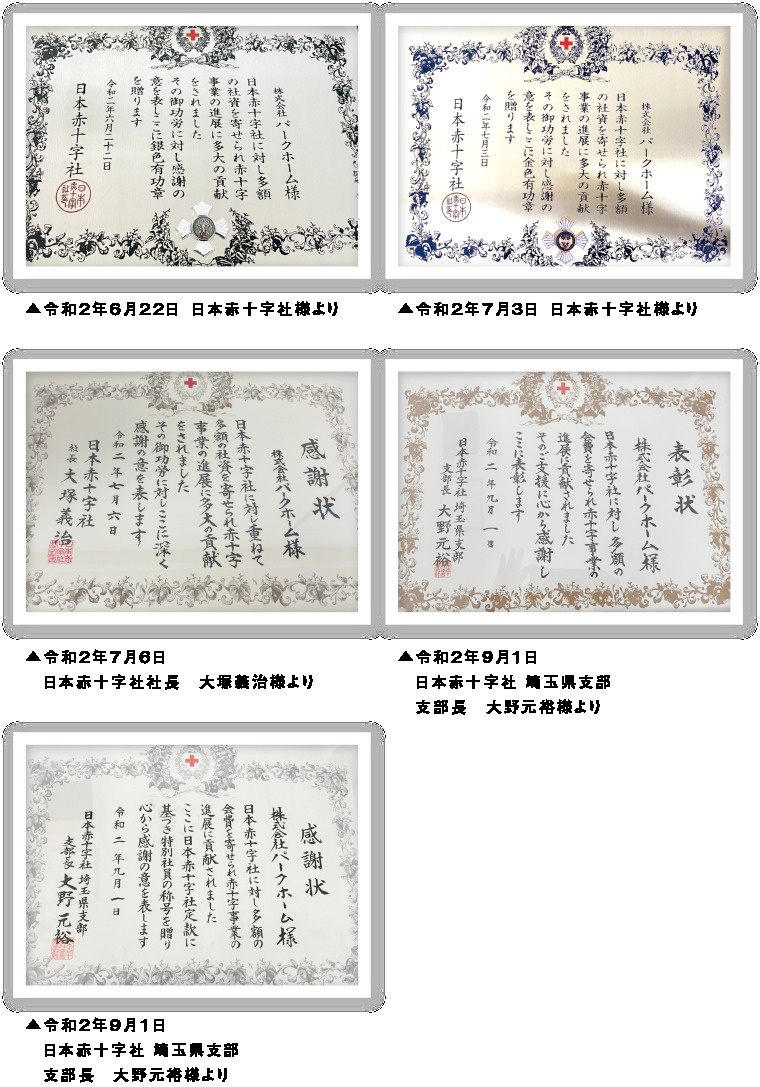 株式会社 パークホーム様
日本赤十字社に対し多額
の社資を寄せられ赤十字
事業の進展に多大の貢献
をされました
その御功労に対し感謝の
意を表しここに銀色有功章
を贈ります
令和二年六月二十二日
日本赤十字社
▲令和2年6月22日 日本赤十字社様より
株式会社 パークホーム様
日本赤十字社に対し多額
の社資を寄せられ赤十字
事業の進展に多大の貢献
をされました
その御功労に対し感謝の
意を表しここに金色有功章
を贈ります
令和二年七月三日
日本赤十字社
▲令和2年7月3日 日本赤十字社様より
感謝状
株式会社パークホーム様
日本赤十字社に対し重ねて
多額の社資を寄せられ赤十字
事業の進展に多大の貢献
をされました
その御功労に対しここに深く
感謝の意を表します
令和二年七月六日
日本赤十字社
社長 大塚義治
▲令和2年7月6日
日本赤十字社社長 大塚義治様より
表彰状
株式会社パークホーム様
日本赤十字社に対し多額の
会費を寄せられ赤十字事業の
進展に貢献されました
そのご支援に心から感謝し
ここに表彰します
令和二年九月一日
日本赤十字社埼玉県支部
支部長 大野元裕
▲令和2年9月1日
日本赤十字社 埼玉県支部
支部長 大野元裕様より
感謝状
株式会社パークホーム様
日本赤十字社に対し多額の
会費を寄せられ赤十字事業の
進展に貢献されました
ここに日本赤十字社定款に
基づき特別社員の称号を贈り
心から感謝の意を表します
令和二年九月一日
日本赤十字社埼玉県支部
支部長 大野元裕
▲令和2年9月1日
日本赤十字社 埼玉県支部
支部長 大野元裕様より